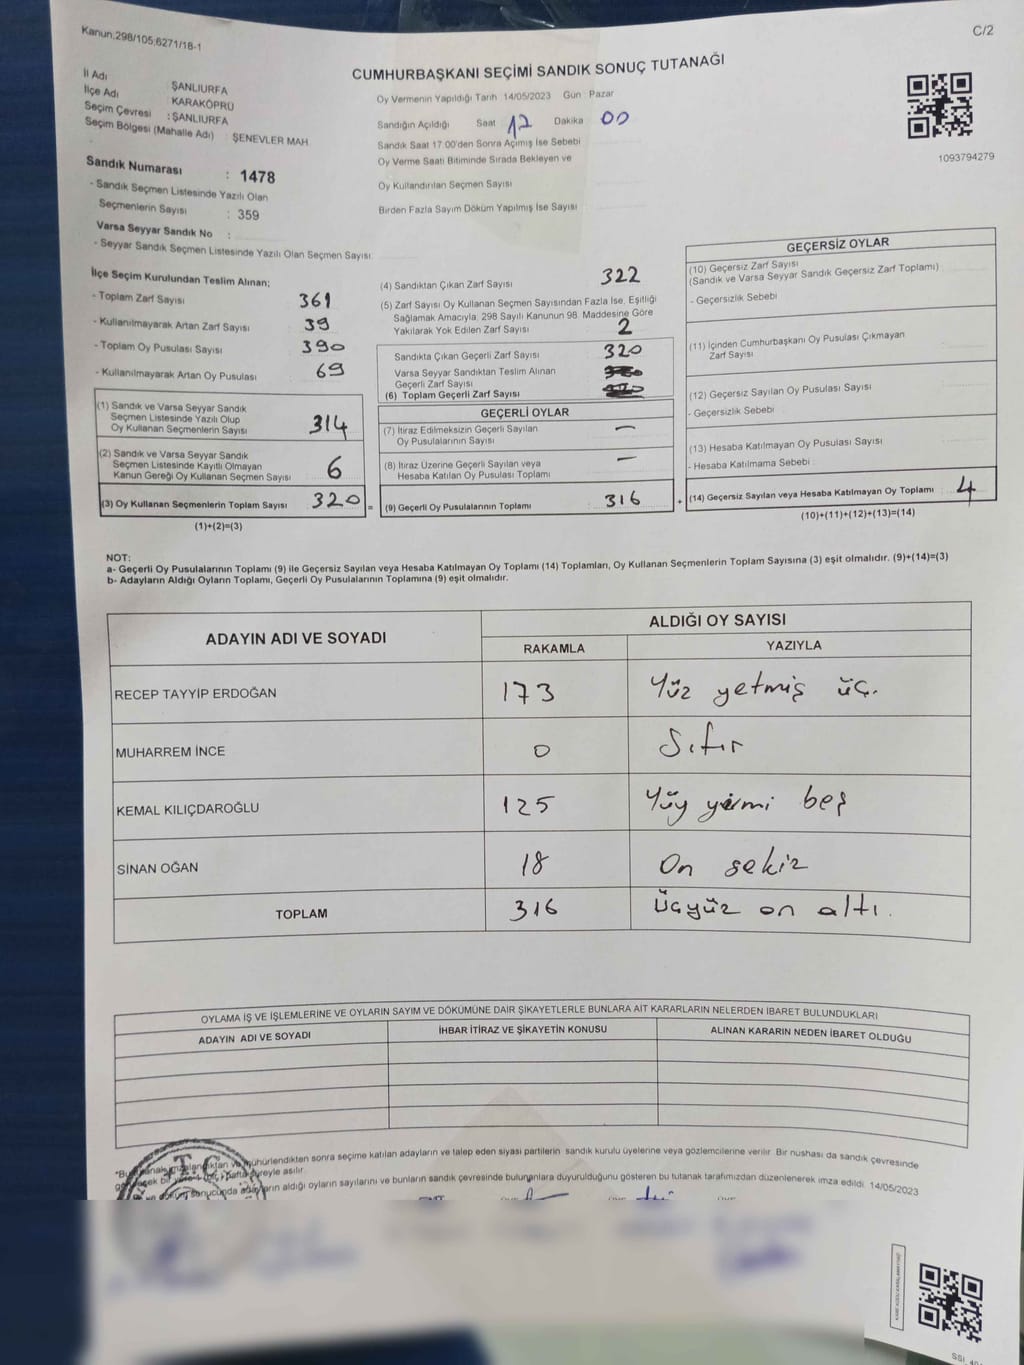 Kanun:298/105;6271/18-1
C/2
CUMHURBAŞKANI SEÇİMİ SANDIK SONUÇ TUTANAĞI
İl Adı ŞANLIURFA
İlçe Adı KARAKÖPRÜ
Seçim Çevresi : ŞANLIURFA
Seçim Bölgesi (Mahalle Adı) : ŞENEVLER MAH
Sandık Numarası : 1478
- Sandık Seçmen Listesinde Yazılı Olan
Seçmenlerin Sayısı : 359
Varsa Seyyar Sandık No :
- Seyyar Sandık Seçmen Listesinde Yazılı Olan Seçmen Sayısı:
Oy Vermenin Yapıldığı Tarih 14/05/2023 Gün : Pazar
Sandığın Açıldığı Saat : 17 Dakika : 00
Sandık Saat 17:00'den Sonra Açımış İse Sebebi
Oy Verme Saati Bitiminde Sırada Bekleyen ve
Oy Kullandırılan Seçmen Sayısı
Birden Fazla Sayım Döküm Yapılmış İse Sayısı
1093794279
İlçe Seçim Kurulundan Teslim Alınan;
- Toplam Zarf Sayısı 361
- Kullanılmayarak Artan Zarf Sayısı : 39
- Toplam Oy Pusulası Sayısı 390
- Kullanılmayarak Artan Oy Pusulası 69
(1) Sandık ve Varsa Seyyar Sandık
Seçmen Listesinde Yazılı Olup
Oy Kullanan Seçmenlerin Sayısı 314
(2) Sandık ve Varsa Seyyar Sandık
Seçmen Listesinde Kayıtlı Olmayan
Kanun Gereği Oy Kullanan Seçmen Sayısı : 6
(3) Oy Kullanan Seçmenlerin Toplam Sayısı : 320 =
(1)+(2)=(3)
(4) Sandıktan Çıkan Zarf Sayısı 322
(5) Zarf Sayısı Oy Kullanan Seçmen Sayısından Fazla İse, Eşitliği
Sağlamak Amacıyla, 298 Sayılı Kanunun 98. Maddesine Göre
Yakılarak Yok Edilen Zarf Sayısı 2
Sandıkta Çıkan Geçerli Zarf Sayısı 320
Varsa Seyyar Sandıktan Teslim Alınan
Geçerli Zarf Sayısı
(6) Toplam Geçerli Zarf Sayısı
GEÇERLİ OYLAR
(7) İtiraz Edilmeksizin Geçerli Sayılan
Oy Pusulalarının Sayısı —
(8) İtiraz Üzerine Geçerli Sayılan veya
Hesaba Katılan Oy Pusulası Toplamı —
(9) Geçerli Oy Pusulalarının Toplamı 316 +
GEÇERSİZ OYLAR
(10) Geçersiz Zarf Sayısı
(Sandık ve Varsa Seyyar Sandık Geçersiz Zarf Toplamı)
- Geçersizlik Sebebi
(11) İçinden Cumhurbaşkanı Oy Pusulası Çıkmayan
Zarf Sayısı
(12) Geçersiz Sayılan Oy Pusulası Sayısı
- Geçersizlik Sebebi
(13) Hesaba Katılmayan Oy Pusulası Sayısı
- Hesaba Katılmama Sebebi
(14) Geçersiz Sayılan veya Hesaba Katılmayan Oy Toplamı : 4
(10)+(11)+(12)+(13)=(14)
NOT:
a- Geçerli Oy Pusulalarının Toplamı (9) ile Geçersiz Sayılan veya Hesaba Katılmayan Oy Toplamı (14) Toplamları, Oy Kullanan Seçmenlerin Toplam Sayısına (3) eşit olmalıdır. (9)+(14)=(3)
b- Adayların Aldığı Oyların Toplamı, Geçerli Oy Pusulalarının Toplamına (9) eşit olmalıdır.
ADAYIN ADI VE SOYADI
ALDIĞI OY SAYISI
RAKAMLA YAZIYLA
RECEP TAYYİP ERDOĞAN 173 Yüz yetmiş üç.
MUHARREM İNCE 0 Sıfır
KEMAL KILIÇDAROĞLU 125 Yüz yirmi beş
SİNAN OĞAN 18 On sekiz
TOPLAM 316 üçyüz on altı.
OYLAMA İŞ VE İŞLEMLERİNE VE OYLARIN SAYIM VE DÖKÜMÜNE DAİR ŞİKAYETLERLE BUNLARA AİT KARARLARIN NELERDEN İBARET BULUNDUKLARI
ADAYIN ADI VE SOYADI İHBAR İTİRAZ VE ŞİKAYETİN KONUSU ALINAN KARARIN NEDEN İBARET OLDUĞU
mühürlendikten sonra seçime katılan adayların ve talep eden siyasi partilerin sandık kurulu üyelerine veya gözlemcilerine verilir. Bir nushası da sandık çevresinde
hafta süreyle asılır.
sonucunda adayların aldığı oyların sayılarını ve bunların sandık çevresinde bulunanlara duyurulduğunu gösteren bu tutanak tarafımızdan düzenlenerek imza edildi. 14/05/2023
T.C.